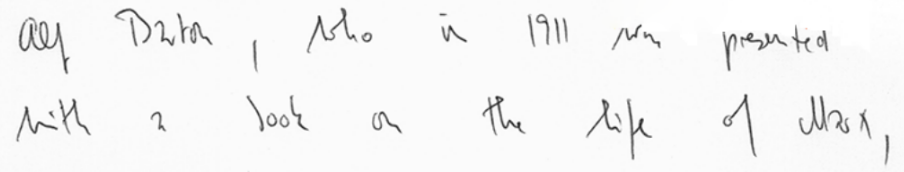 Alf Barton, who in 1911 was presented
with a book on the life of Marx,